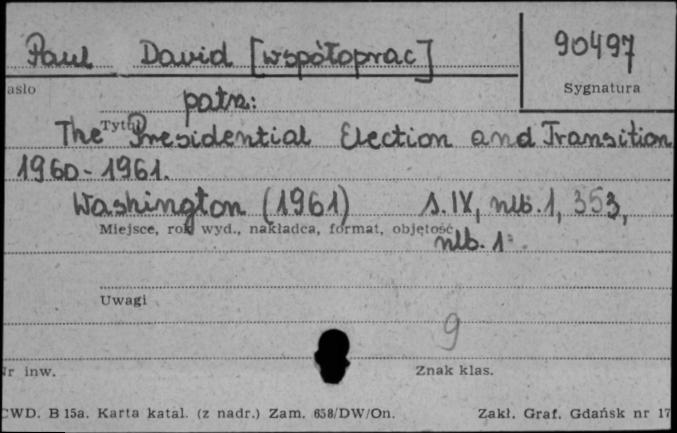 Paul David [współoprac] 90497
asło Sygnatura
patrz:
Tytuł
The Presidential Election and Transition
1960-1961.
Washington (1961) s. IX, nlb. 1, 353,
Miejsce, rok wyd., nakładca, format, objętość
nlb. 1
Uwagi
9
Nr inw. Znak klas.
CWD. B 15a. Karta katal. (z nadr.) Zam. 658/DW/On. Zakł. Graf. Gdańsk nr 17